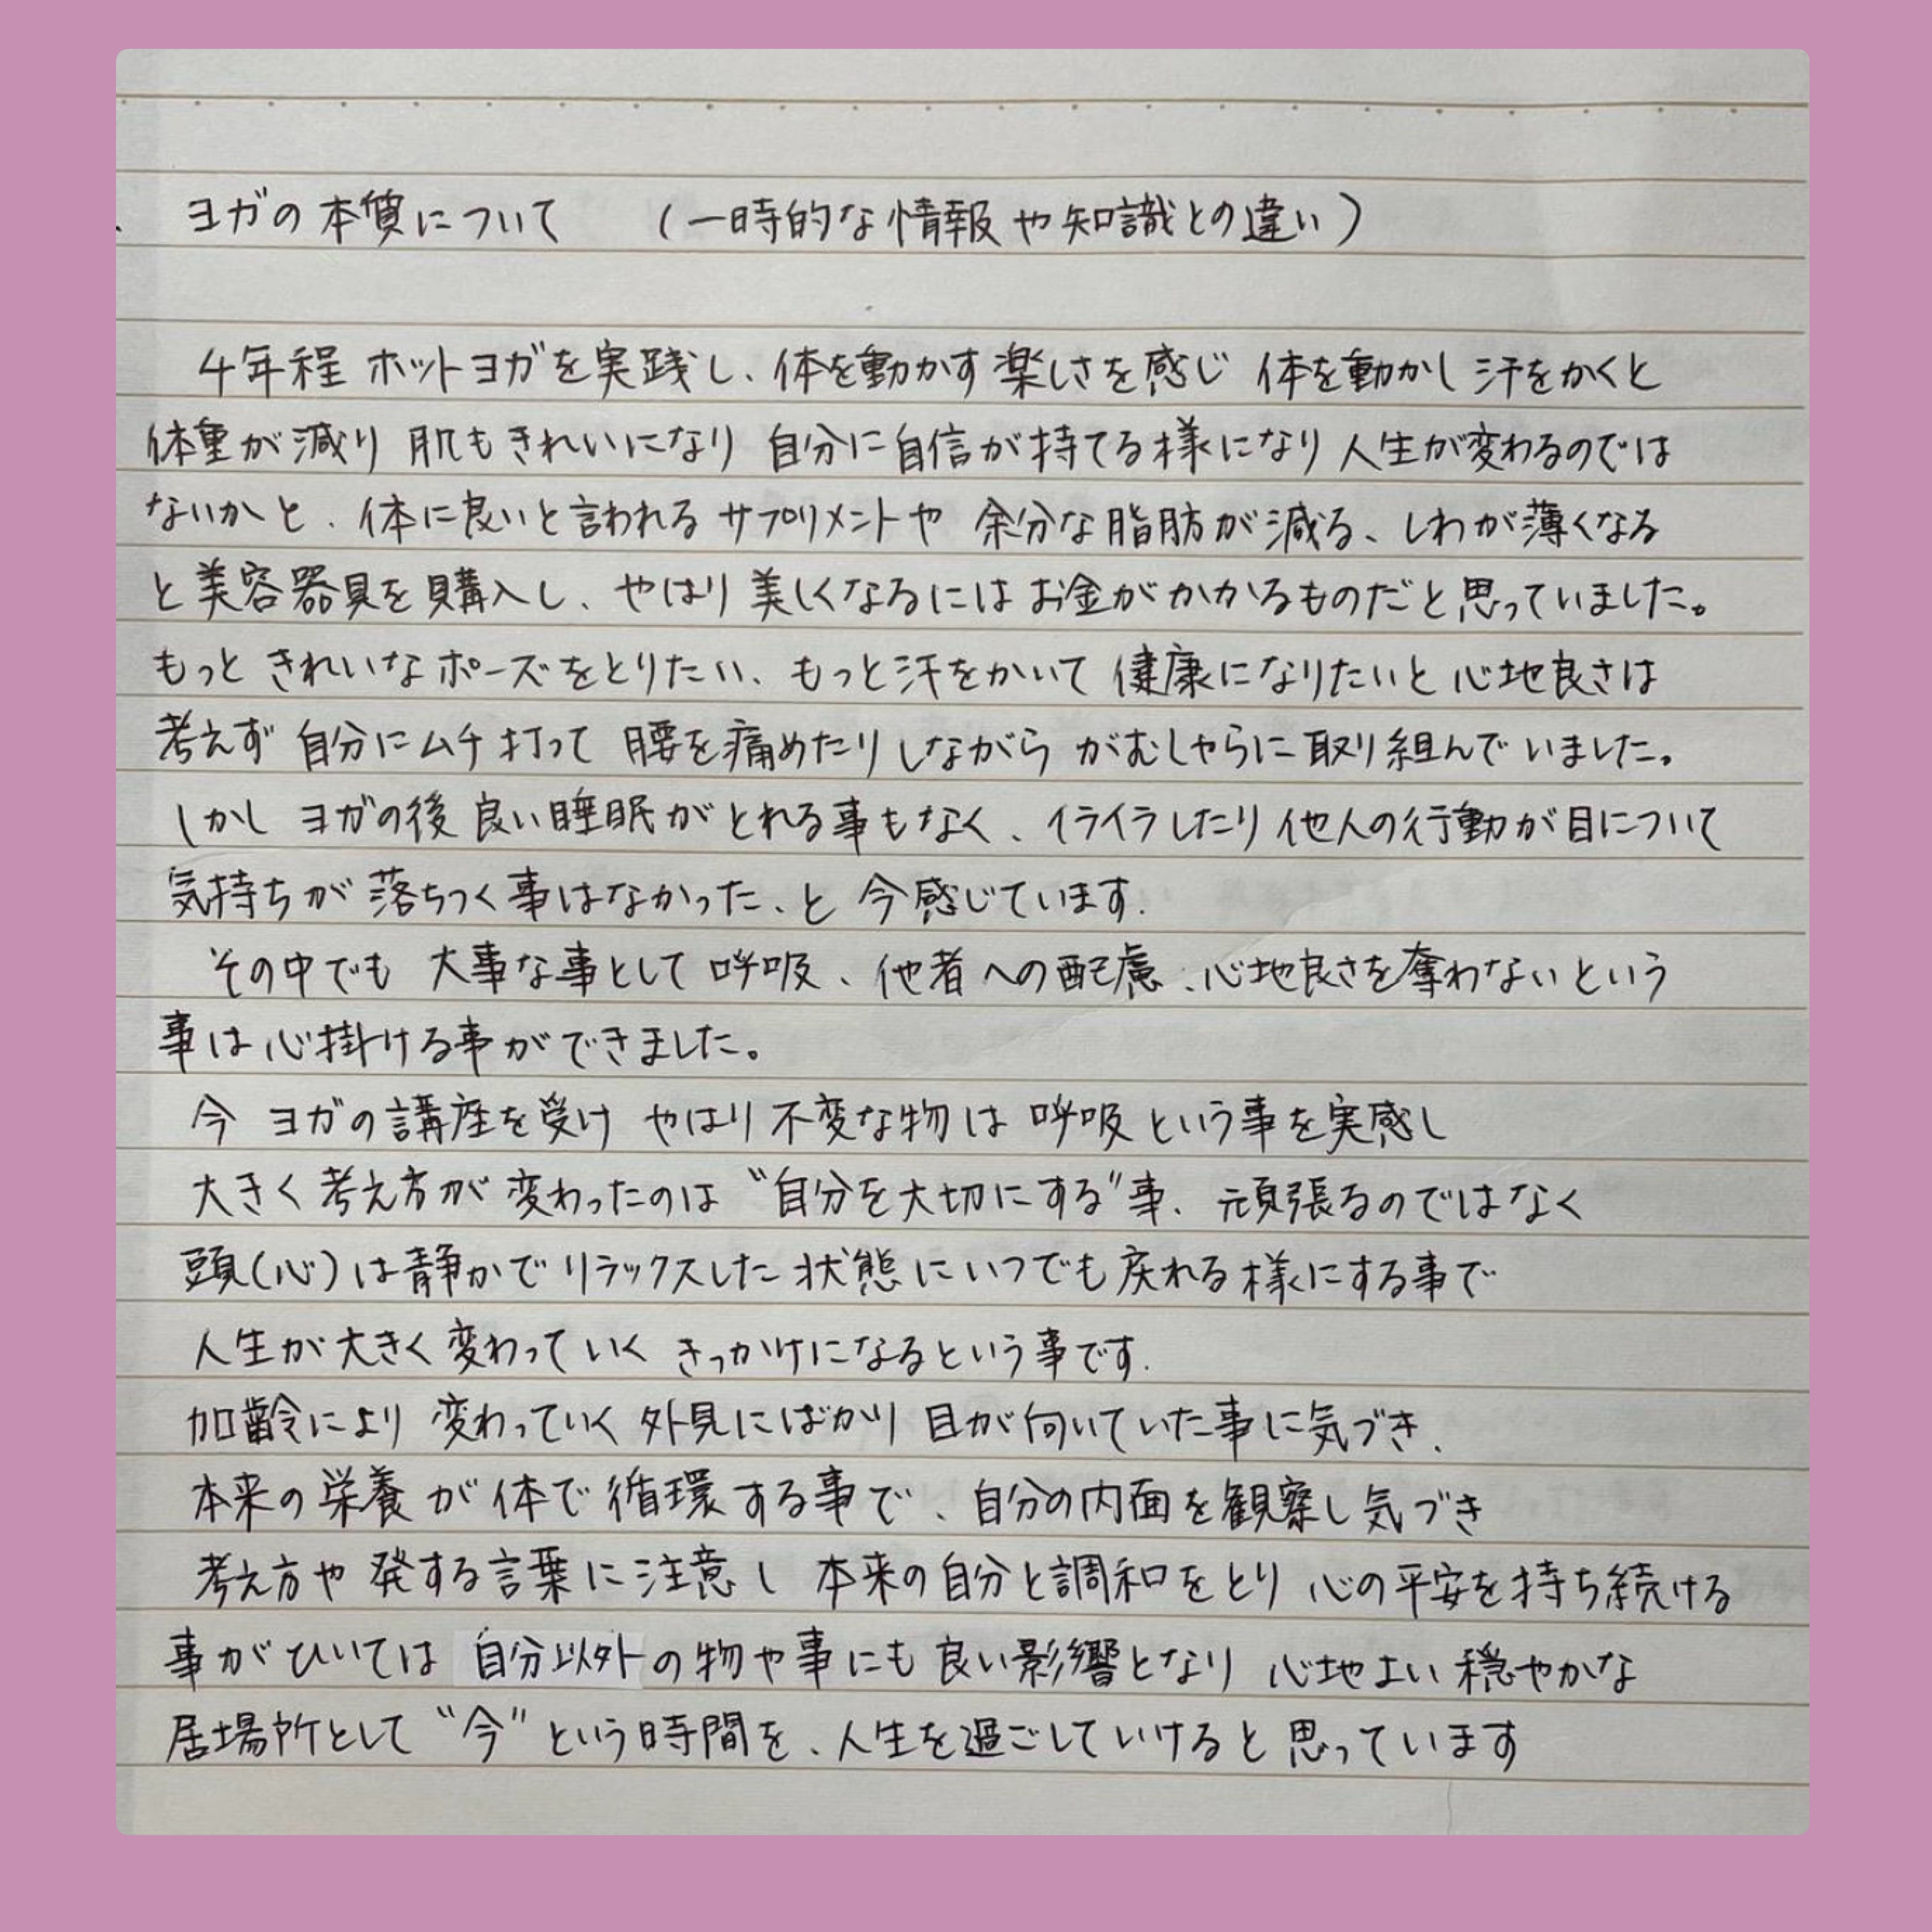 ヨガの本質について （一時的な情報や知識との違い）
4年程 ホットヨガを実践し、体を動かす楽しさを感じ 体を動かし汗をかくと
体重が減り 肌もきれいになり 自分に自信が持てる様になり 人生が変わるのでは
ないかと、体に良いと言われるサプリメントや 余分な脂肪が減る、しわが薄くなる
と美容器具を購入し、やはり美しくなるにはお金がかかるものだと思っていました。
もっと きれいなポーズをとりたい、もっと汗をかいて 健康になりたいと 心地良さは
考えず 自分にムチ打って 腰を痛めたりしながら がむしゃらに取り組んで いました。
しかし ヨガの後 良い睡眠がとれる事もなく、イライラしたり 他人の行動が目について
気持ちが落ちつく事はなかった、と 今感じています.
その中でも 大事な事として 呼吸、他者への配慮、心地良さを奪わないという
事は心掛ける事ができました。
今 ヨガの講座を受け やはり不変な物は 呼吸という事を実感し
大きく考え方が変わったのは “自分を大切にする”事、頑張るのではなく
頭(心)は静かでリラックスした状態にいつでも戻れる様にする事で
人生が大きく変わっていく きっかけになるという事です.
加齢により 変わっていく外見にばかり 目が向いていた事に気づき、
本来の栄養が体で循環する事で、自分の内面を観察し気づき
考え方や発する言葉に注意し 本来の自分と調和をとり 心の平安を持ち続ける
事がひいては 自分以外の物や事にも良い影響となり 心地よい穏やかな
居場所として “今” という時間を、人生を過ごしていけると思っています